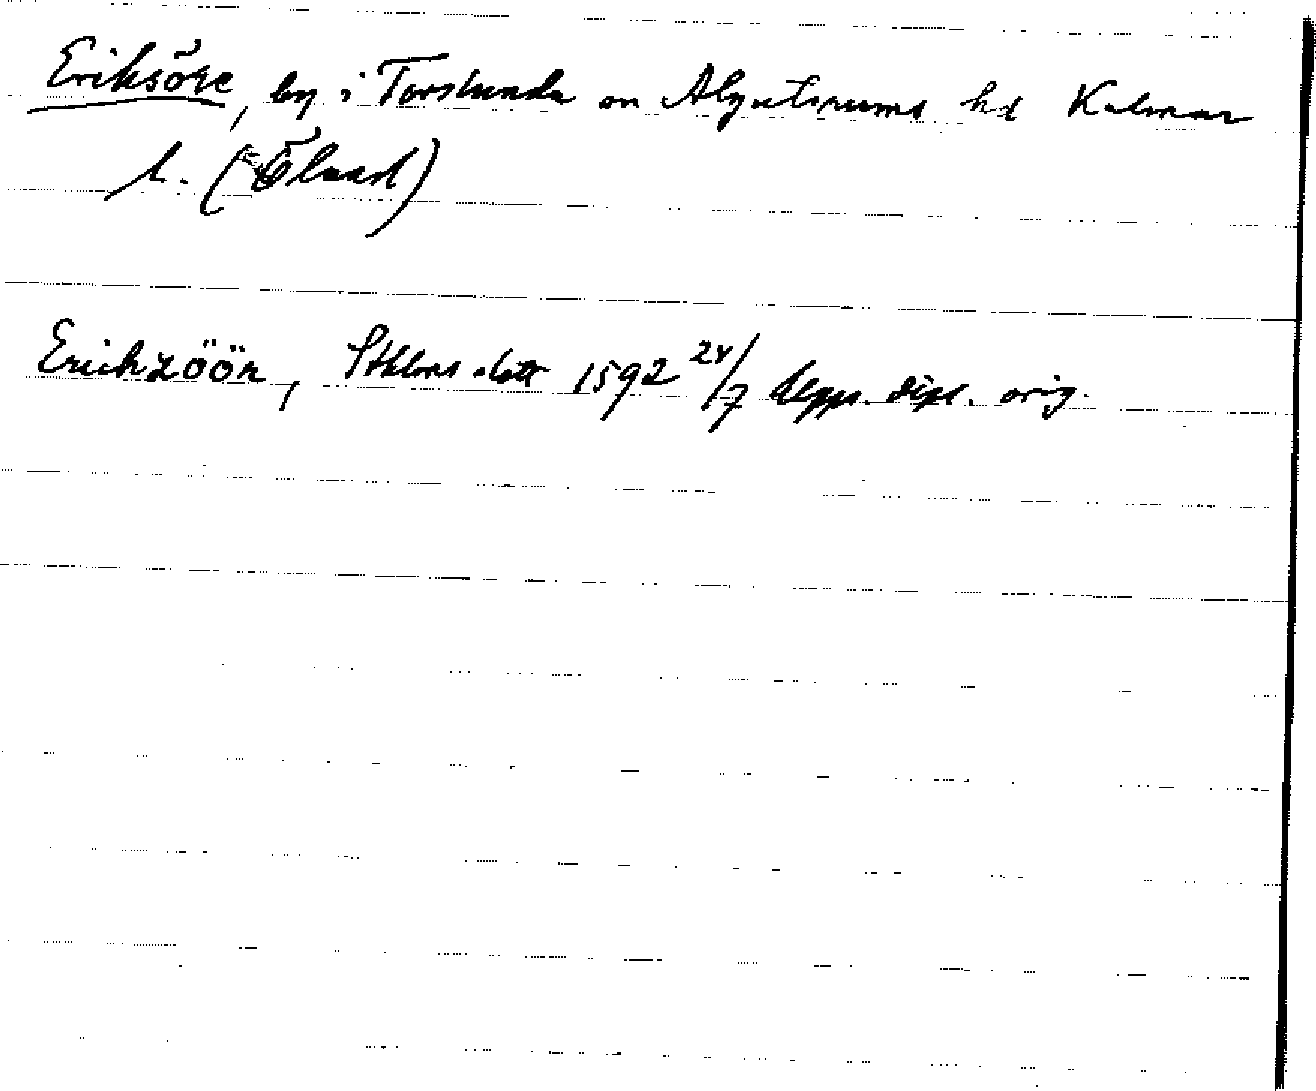 Eriksöre, by i Torslunda sn Algutsrums hd Kalmar
l. (Öland)
Erichzöör, Sthlms slott 1592 24/7 pappr. dipl. orig.